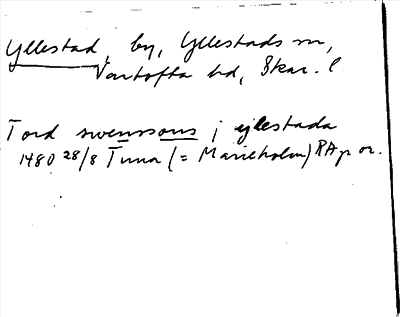 Yllestad, by, Yllestads sn,
Vartofta hd, Skar. l
Tord swenssons i ylestada
1480 28/8 Tuna (= Marieholm) RAp or.